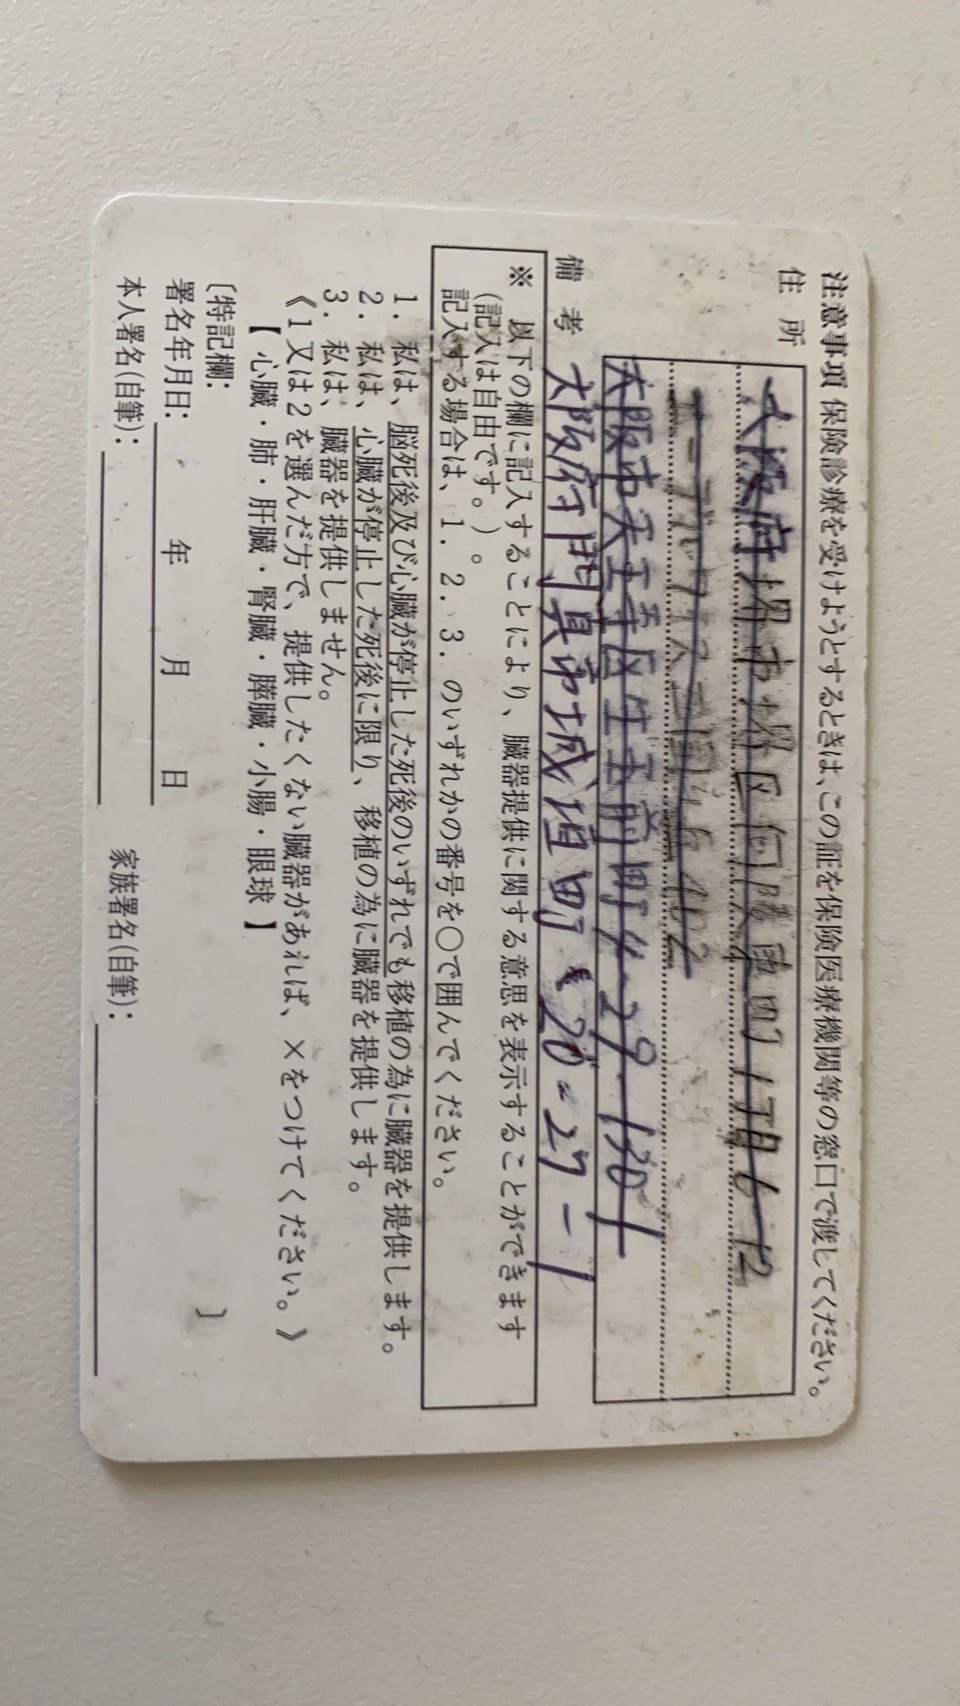 注意事項 保険診療を受けようとするときは、この証を保険医療機関等の窓口で渡してください。
住所
大阪府堺市堺区向陽東町1丁目6-12
402
大阪市天王寺区生玉前町4-29-1201
備考 大阪府門真市城垣町 20-27-1
※ 以下の欄に記入することにより、臓器提供に関する意思を表示することができます
(記入は自由です。)。
記入する場合は、1. 2. 3. のいずれかの番号を〇で囲んでください。
1. 私は、脳死後及び心臓が停止した死後のいずれでも移植の為に臓器を提供します。
2. 私は、心臓が停止した死後に限り、移植の為に臓器を提供します。
3. 私は、臓器を提供しません。
《1又は2を選んだ方で、提供したくない臓器があれば、×をつけてください。》
【 心臓・肺・肝臓・腎臓・膵臓・小腸・眼球 】
〔特記欄: 〕
署名年月日: 年 月 日
本人署名(自筆): 家族署名(自筆):